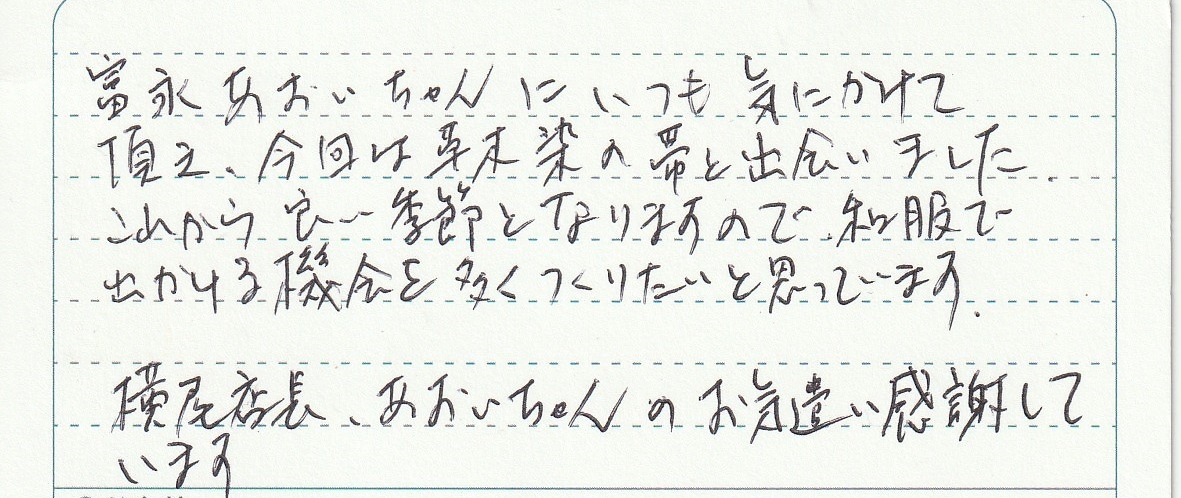 富永あおいちゃんにいつも気にかけて
頂き、今回は草木染の帯と出会いました.
これから良い季節となりますので、和服で
出かける機会を多くつくりたいと思っています.
横尾店長、あおいちゃんのお気遣い感謝して
います